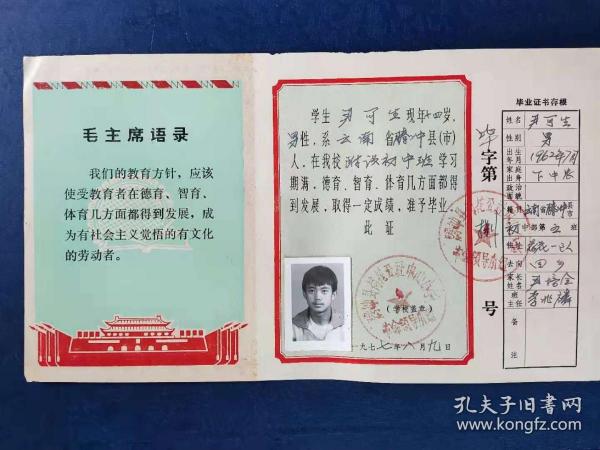 毛主席语录
我们的教育方针，应该
使受教育者在德育、智育、
体育几方面都得到发展，成
为有社会主义觉悟的有文化
的劳动者。
学生 可生 现年十四岁，
男性，系云南省腾冲县(市)
人，在我校附设初中班学习
期满，德育、智育、体育几方面都得
到发展，取得一定成绩，准予毕业。
此证
(学校盖章)
一九七七年八月九日
毕字第
号
毕业证书存根
姓名 可生
性别 男
出生年月 1962年7月
家庭出身 下中农
政治面貌
籍贯 云南省腾冲县市
初中部第五班
住址
去向 回乡
家长姓名
班主任 李兆
备注
孔夫子旧书网
www.kongfz.com